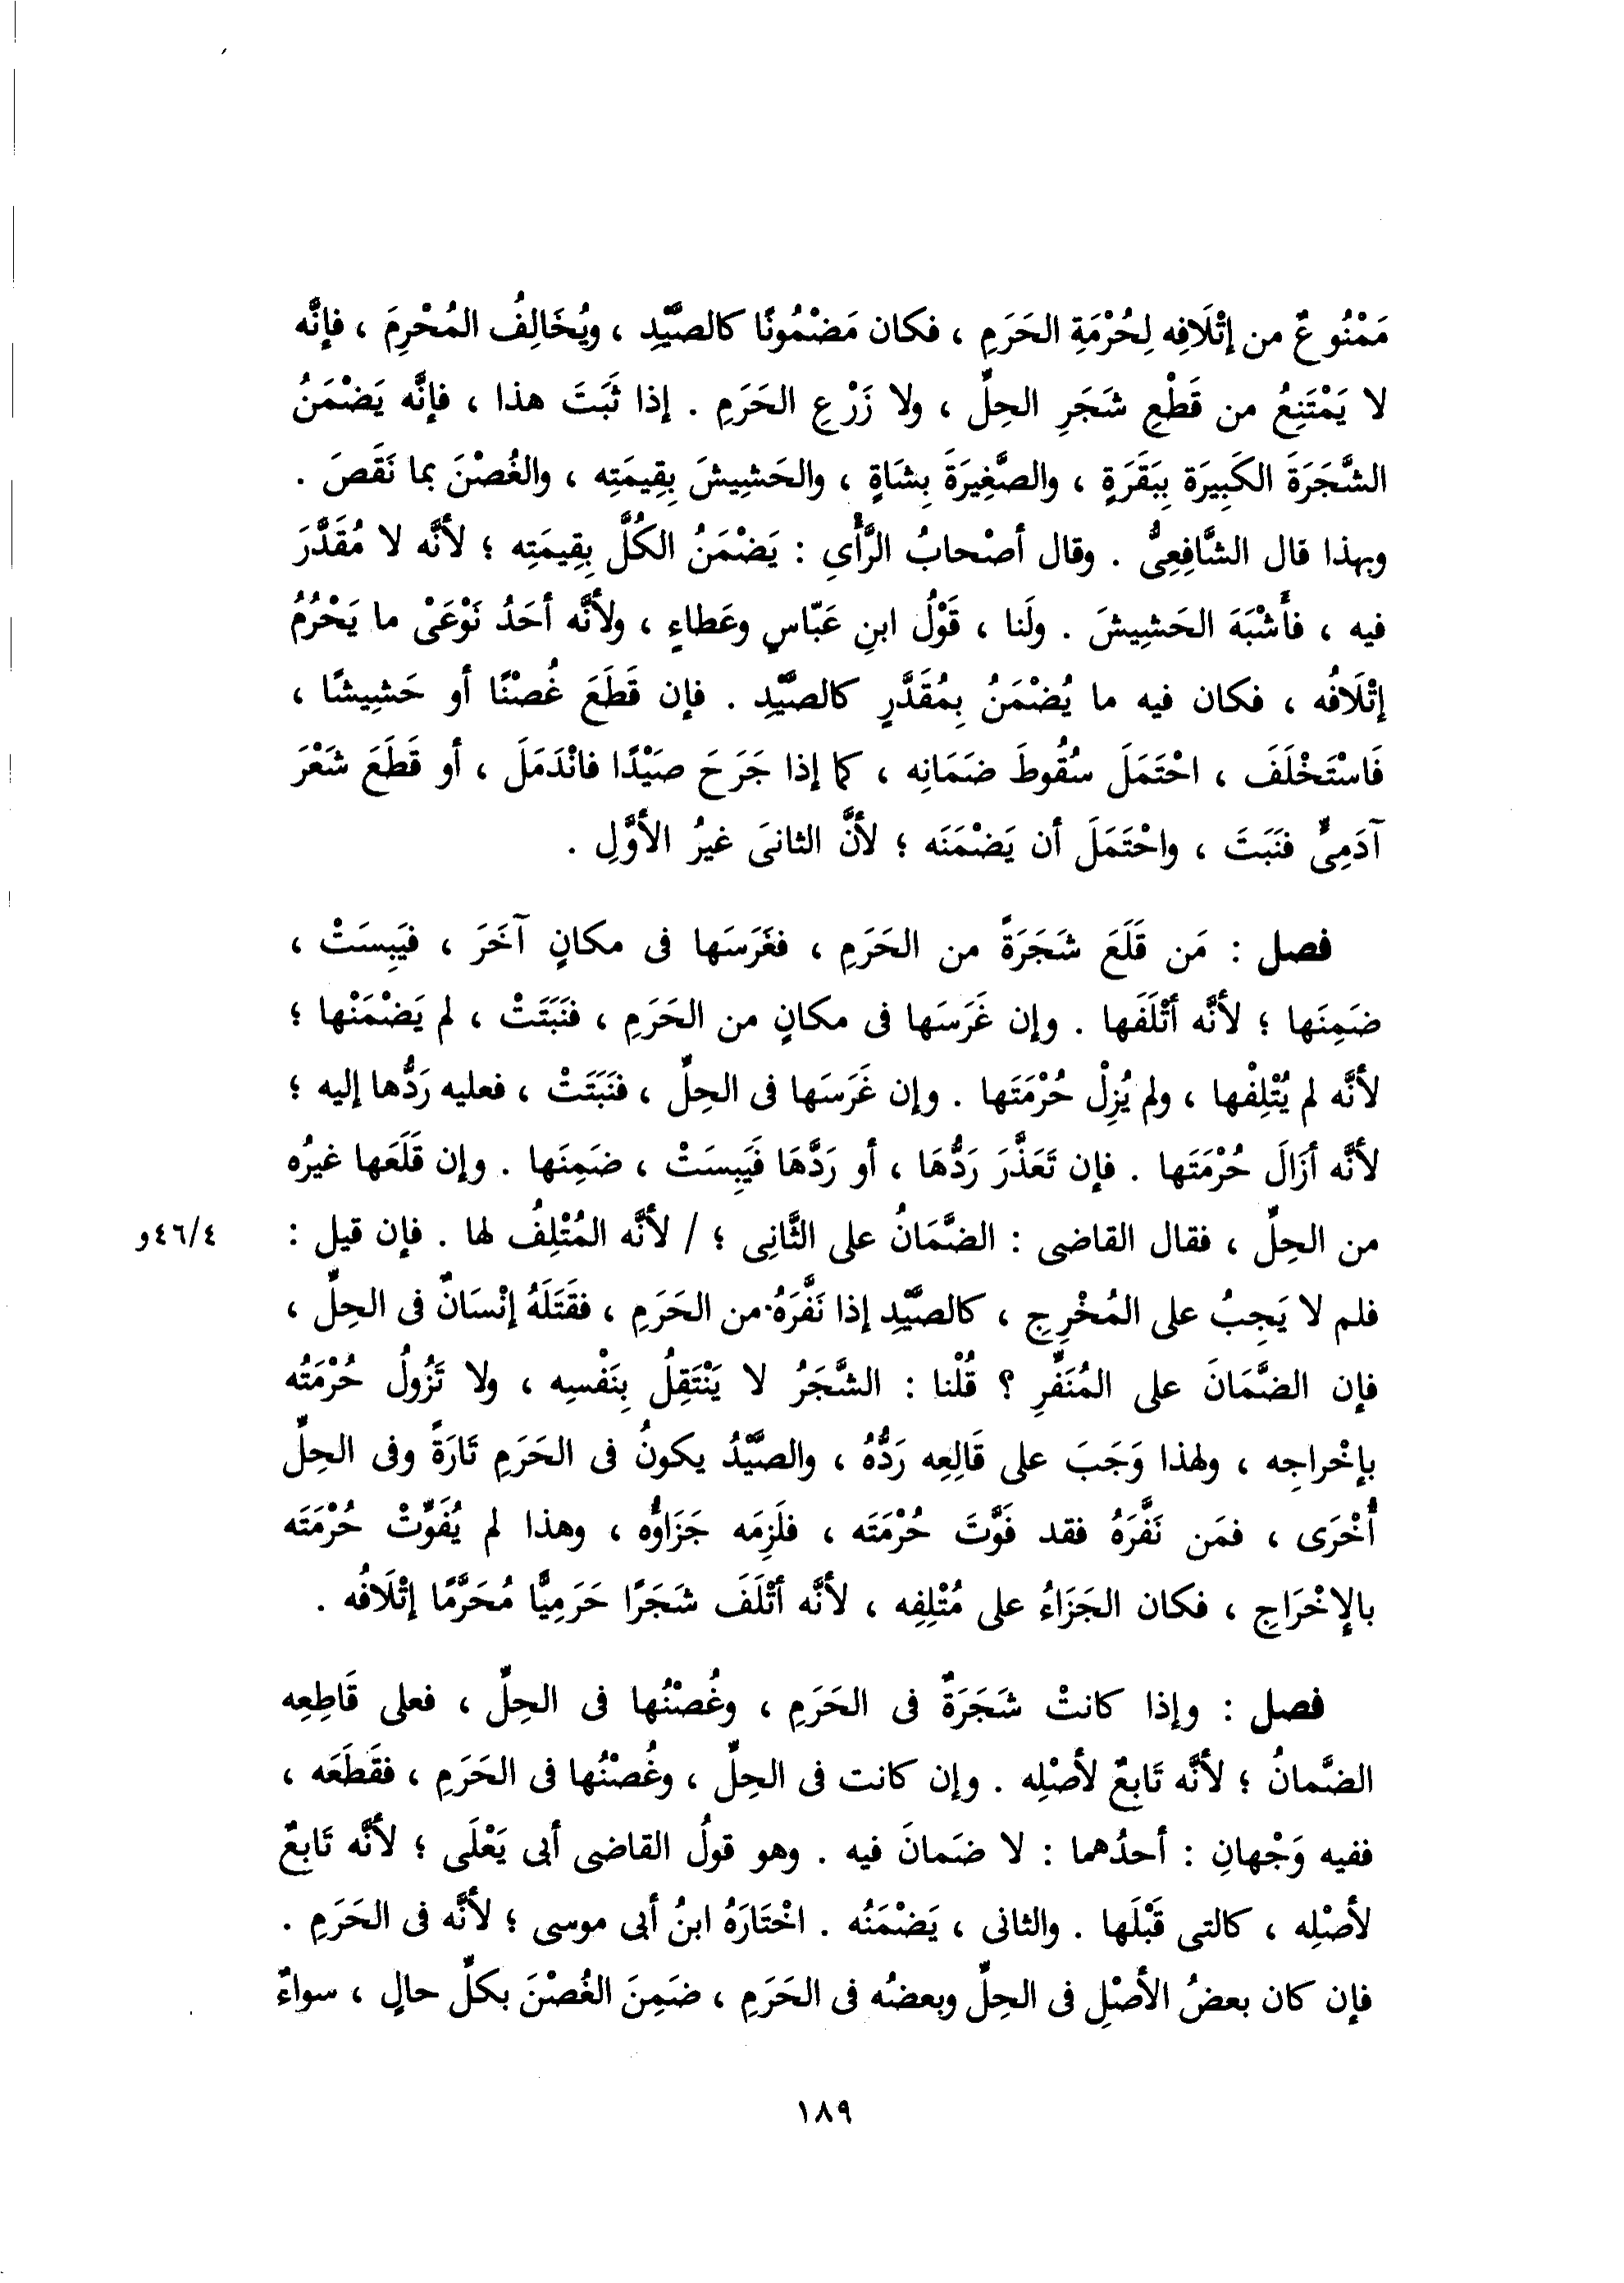 مَمْنُوعٌ من إتْلَافِه لِحُرْمَةِ الحَرَمِ ، فكان مَضْمُونًا كالصَّيْدِ ، ويُخَالِفُ المُحْرِمَ ، فإنَّه
لا يَمْتَنِعُ من قَطْعِ شَجَرِ الحِلِّ ، ولا زَرْعِ الحَرَمِ . إذا ثَبَتَ هذا ، فإنَّه يَضْمَنُ
الشَّجَرَةَ الكَبِيرَة بِبَقَرَةٍ ، والصَّغِيرَةَ بِشَاةٍ ، والحَشِيشَ بِقِيمَتِه ، والغُصْنَ بما نَقَصَ .
وبهذا قال الشَّافِعِىُّ . وقال أصْحابُ الرَّأْىِ : يَضْمَنُ الكُلَّ بِقِيمَتِه ؛ لأنَّه لا مُقَدَّرَ
فيه ، فأَشْبَهَ الحَشِيشَ . ولَنا ، قَوْلُ ابنِ عَبّاسٍ وعَطاءٍ ، ولأنَّه أحَدُ نَوْعَىْ ما يَحْرُمُ
إتْلَافُه ، فكان فيه ما يُضْمَنُ بِمُقَدَّرٍ كالصَّيْدِ . فإن قَطَعَ غُصْنًا أو حَشِيشًا ،
فَاسْتَخْلَفَ ، احْتَمَلَ سُقُوطَ ضَمَانِه ، كما إذا جَرَحَ صَيْدًا فانْدَمَلَ ، أو قَطَعَ شَعْرَ
آدَمِىٍّ فنَبَتَ ، واحْتَمَلَ أن يَضْمَنَه ؛ لأنَّ الثانىَ غيرُ الأوَّلِ .
فصل : مَن قَلَعَ شَجَرَةً من الحَرَمِ ، فغَرَسَها فى مكانٍ آخَرَ ، فيَبِسَتْ ،
ضَمِنَها ؛ لأنَّه أتْلَفَها . وإن غَرَسَها فى مكانٍ من الحَرَمِ ، فنَبَتَتْ ، لم يَضْمَنْها ؛
لأنَّه لم يُتْلِفْها ، ولم يُزِلْ حُرْمَتَها . وإن غَرَسَها فى الحِلِّ ، فنَبَتَتْ ، فعليه رَدُّها إليه ؛
لأنَّه أزَالَ حُرْمَتَها . فإن تَعَذَّرَ رَدُّهَا ، أو رَدَّهَا فَيَبِسَتْ ، ضَمِنَها . وإن قَلَعَها غيرُه
من الحِلِّ ، فقال القاضى : الضَّمَانُ على الثَّانِى ؛ / لأنَّه المُتْلِفُ لها . فإن قيل : ٤٦/٤و
فلم لا يَجِبُ على المُخْرِجِ ، كالصَّيْدِ إذا نَفَّرَهُ من الحَرَمِ ، فقَتَلَهُ إنْسَانٌ فى الحِلِّ ،
فإن الضَّمَانَ على المُنَفِّرِ ؟ قُلْنا : الشَّجَرُ لا يَنْتَقِلُ بِنَفْسِه ، ولا تَزُولُ حُرْمَتُه
بإخْراجِه ، ولهذا وَجَبَ على قَالِعِه رَدُّهُ ، والصَّيْدُ يكونُ فى الحَرَمِ تَارَةً وفى الحِلِّ
أُخْرَى ، فمَن نَفَّرَهُ فقد فَوَّتَ حُرْمَتَه ، فلَزِمَه جَزَاؤُه ، وهذا لم يُفَوِّتْ حُرْمَتَه
بالإخْرَاجِ ، فكان الجَزَاءُ على مُتْلِفِه ، لأنَّه أتْلَفَ شَجَرًا حَرَمِيًّا مُحَرَّمًا إتْلَافُه .
فصل : وإذا كانتْ شَجَرَةٌ فى الحَرَمِ ، وغُصْنُها فى الحِلِّ ، فعلى قَاطِعِه
الضَّمانُ ؛ لأنَّه تَابِعٌ لأصْلِه . وإن كانت فى الحِلِّ ، وغُصْنُها فى الحَرَمِ ، فقَطَعَه ،
ففيه وَجْهانِ : أحدُهما : لا ضَمانَ فيه . وهو قولُ القاضى أبى يَعْلَى ؛ لأنَّه تَابِعٌ
لأصْلِه ، كالتى قَبْلَها . والثانى ، يَضْمَنُه . اخْتَارَهُ ابنُ أبى موسى ؛ لأنَّه فى الحَرَمِ .
فإن كان بعضُ الأصْلِ فى الحِلِّ وبعضُه فى الحَرَمِ ، ضَمِنَ الغُصْنَ بكلِّ حالٍ ، سواءٌ
١٨٩